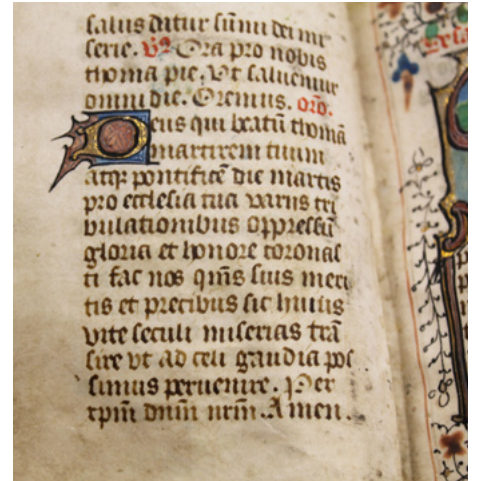 salus datur sūmi dei mi
serie. V2 Ora pro nobis
thoma pie. Vt saluemur
omni die. Oremus. orō.
Deus qui beatū thomā
martirem tuum
atqꝫ pontificē die martis
pro ecclesia tua variis tri
bulationibus oppressū
gloria et honore coronas
ti fac nos qm̄s suis meri
tis et precibus sic huius
vite seculi miserias trā
sire vt ad celi gaudia pos
simus peruenire. Per
xpm̄ dnm̄ nrm̄. Amen.